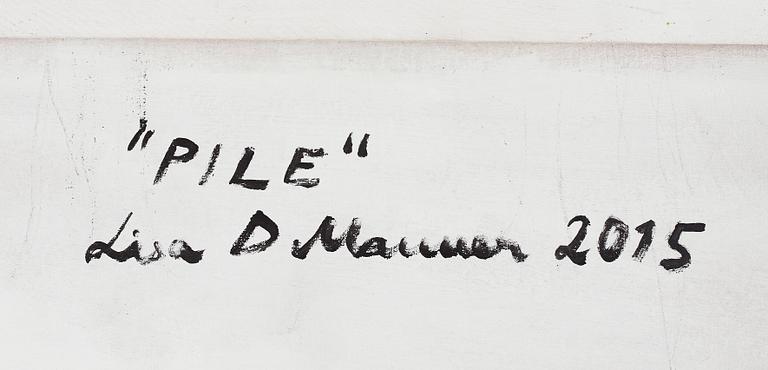 "PILE"
Lisa D Manner 2015